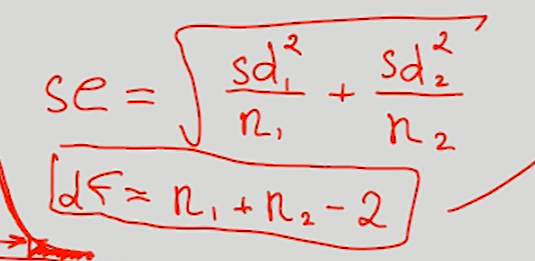 se = √(sd₁²/n₁ + sd₂²/n₂)
df = n₁ + n₂ - 2